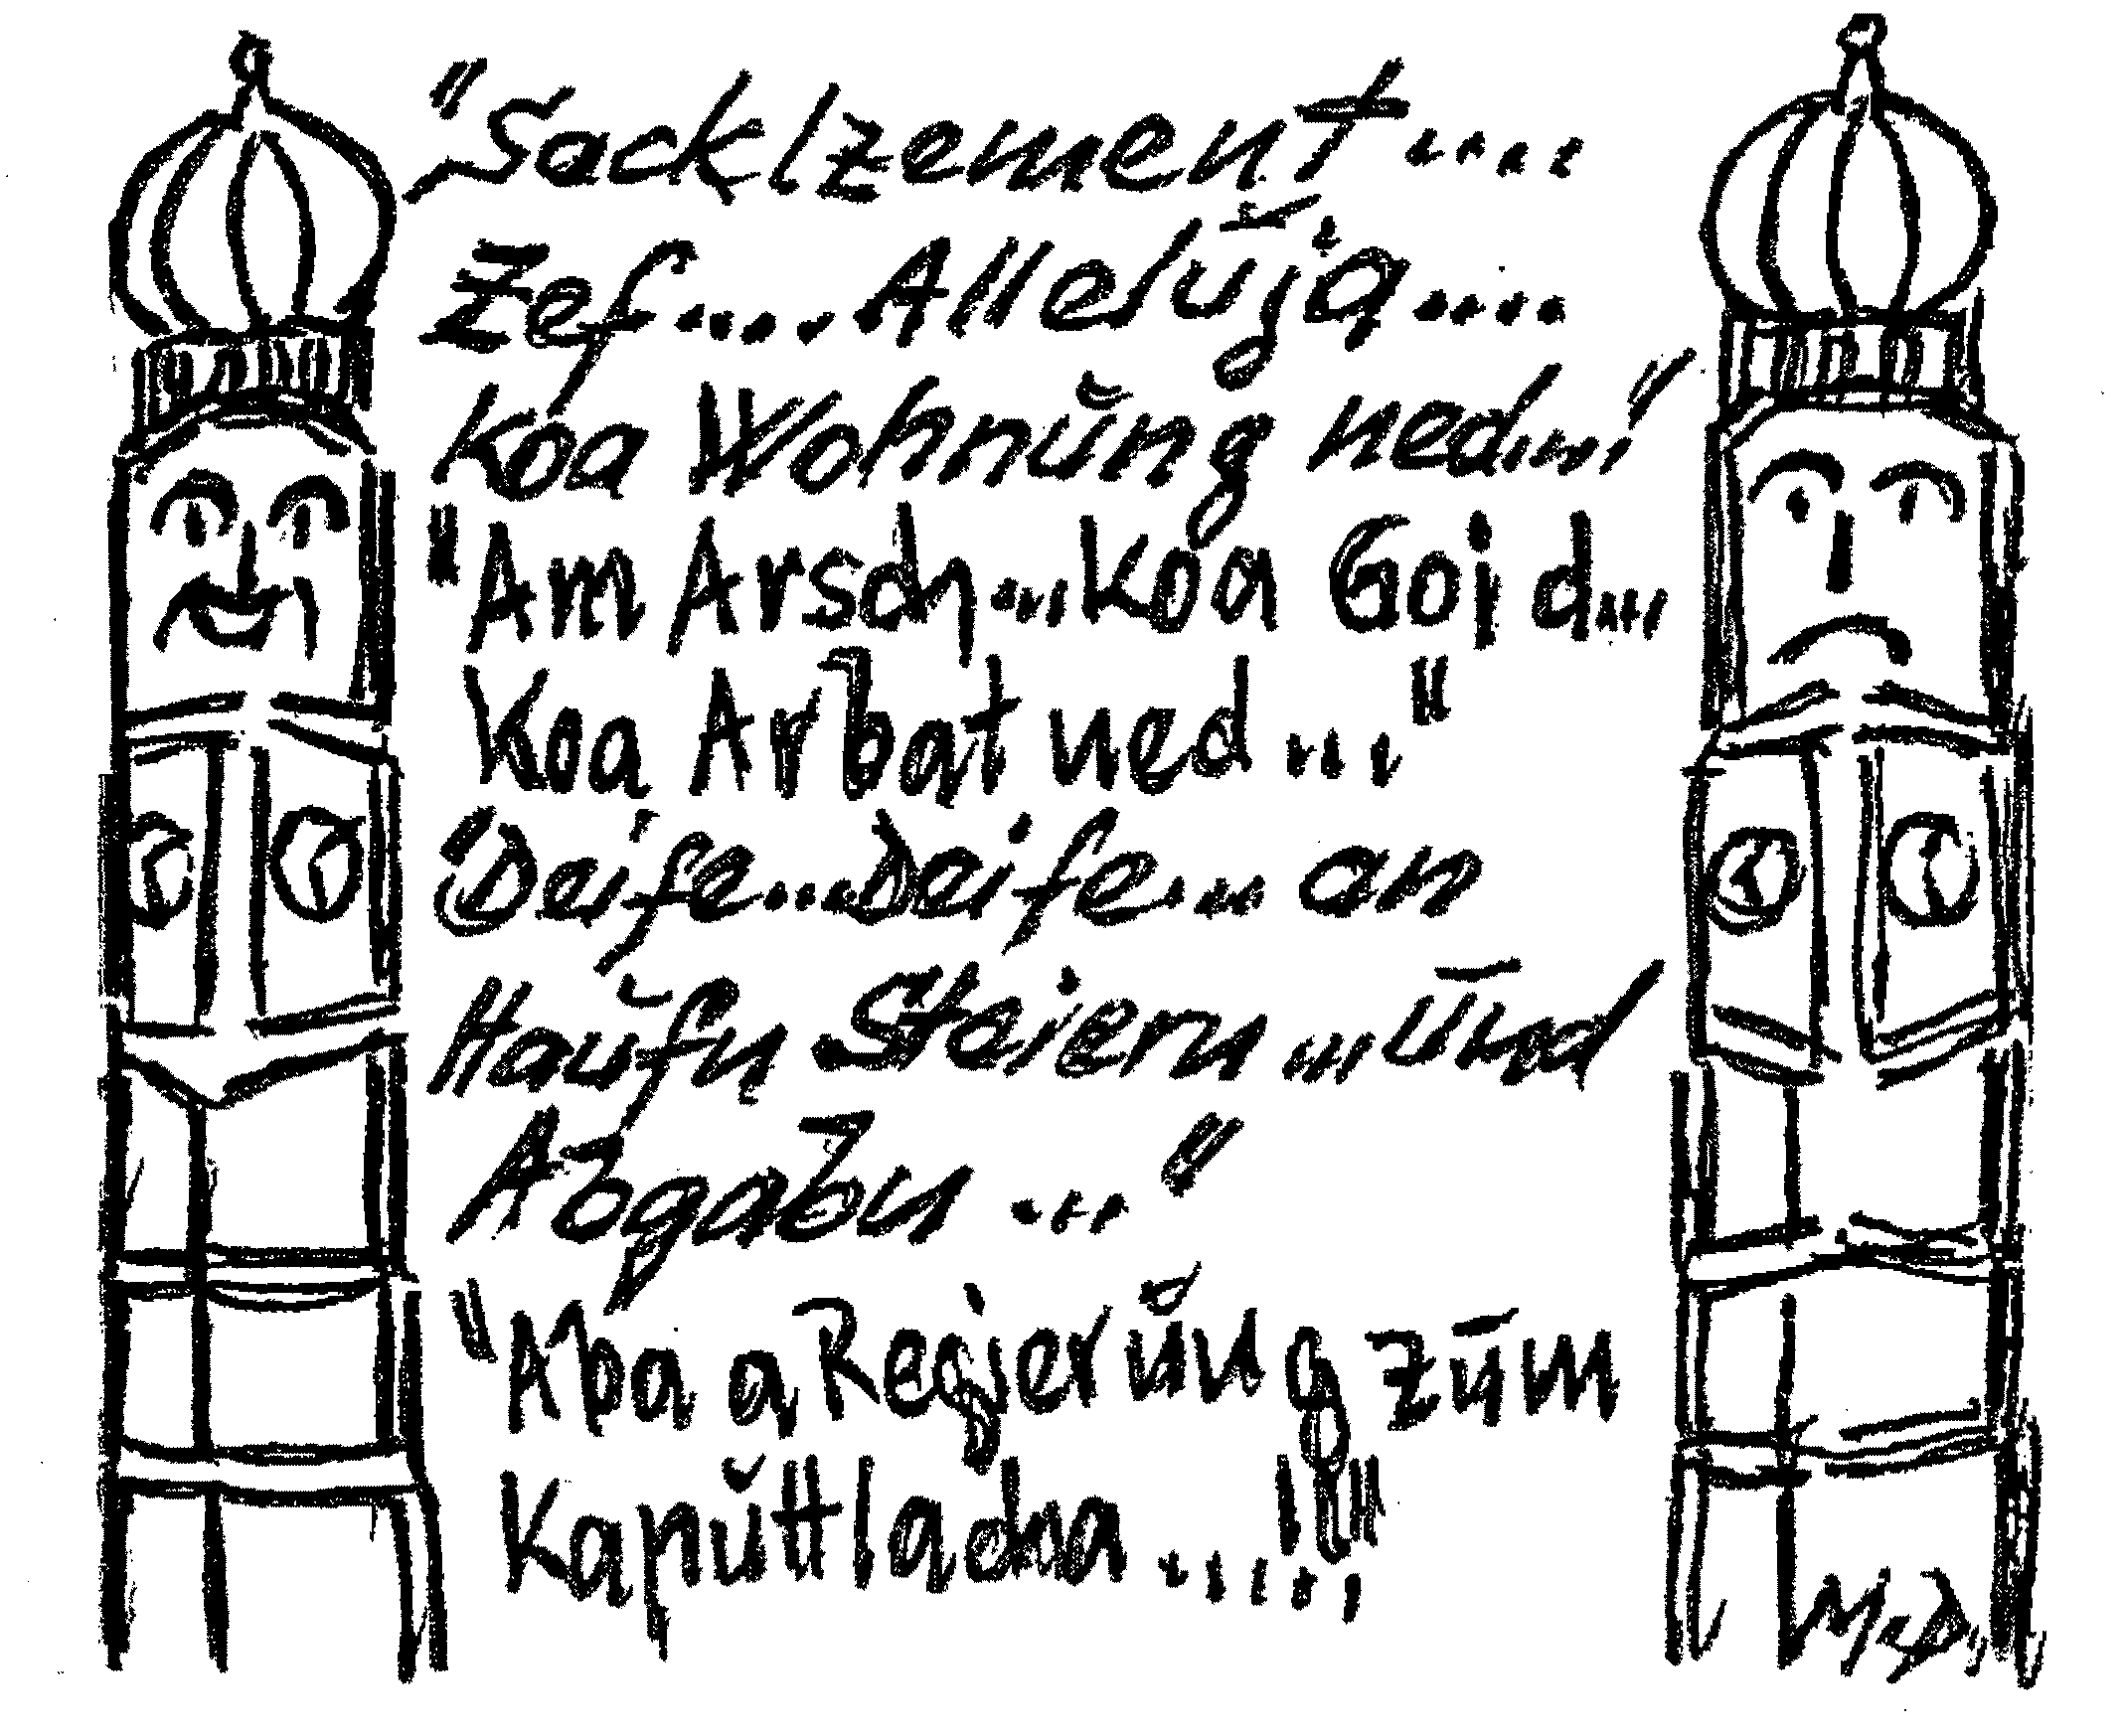 "Sacklzement....
Zef.... Alleluja....
Koa Wohnung ned..."
"Am Arsch...Koa Goid...
Koa Arbat ned..."
"Deife...Deife... an
Haufn Steiern...und
Abgabn..."
"Aba a Regierung zum
Kaputtlacha.....!!"
M.D.